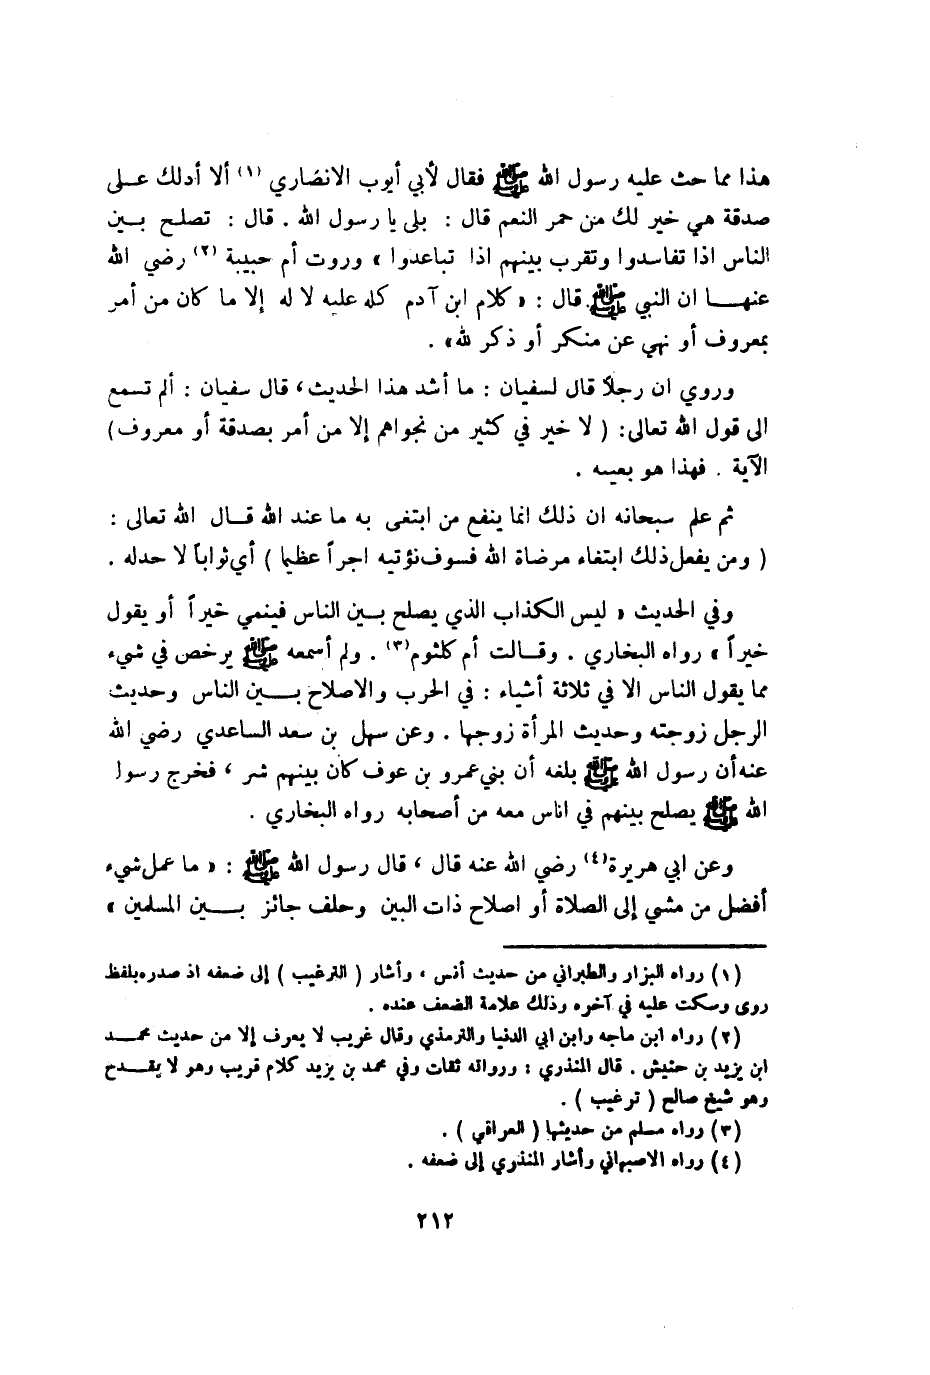 هذا مما حث عليه رسول الله ﷺ فقال لأبي أيوب الانصاري (١) ألا أدلك عـلى
صدقة هي خير لك من حمر النعم قال : بلى يا رسول الله . قال : تصلح بـين
الناس اذا تفاسدوا وتقرب بينهم اذا تباعدوا » وروت أم حبيبة (٢) رضي الله
عنهـــا ان النبي ﷺ قال : « كلام ابن آدم كله عليه لا له إلا ما كان من أمر
بمعروف أو نهي عن منكر أو ذكر لله» .
وروي ان رجلاً قال لسفيان : ما أشد هذا الحديث، قال سفيان : ألم تـسمع
الى قول الله تعالى: ( لا خير في كثير من نجواهم إلا من أمر بصدقة أو معروف)
الآية . فهذا هو بعينه .
ثم علم سبحانه ان ذلك انما ينفع من ابتغى به ما عند الله قــال الله تعالى :
( ومن يفعل ذلك ابتغاء مرضاة الله فسوف نؤتيه اجراً عظيما ) أي ثواباً لا حد له .
وفي الحديث « ليس الكذاب الذي يصلح بـين الناس فينمي خيراً أو يقول
خيراً » رواه البخاري . وقـالت أم كلثوم(٣) . ولم أسمعه ﷺ يرخص في شيء
مما يقول الناس الا في ثلاثة أشياء : في الحرب والاصلاح بــين الناس وحديث
الرجل زوجته وحديث المرأة زوجها . وعن سهل بن سعد الساعدي رضي الله
عنه أن رسول الله ﷺ بلغه أن بني عمرو بن عوف كان بينهم شر ، فخرج رسول
الله ﷺ يصلح بينهم في اناس معه من أصحابه رواه البخاري .
وعن ابي هريرة(٤) رضي الله عنه قال ، قال رسول الله ﷺ : « ما عمل شيء
أفضل من مشي إلى الصلاة أو اصلاح ذات البين وحلف جائز بــين المسلمين »
(١) رواه البزار والطبراني من حديث أنس ، وأشار ( الترغيب ) إلى ضعفه اذ صدره بلفظ
روى وسكت عليه في آخره وذلك علامة الضعف عنده .
(٢) رواه ابن ماجه وابن ابي الدنيا والترمذي وقال غريب لا يعرف إلا من حديث محمــد
ابن يزيد بن حنيش . قال المنذري : ورواته ثقات وفي محمد بن يزيد كلام قريب وهو لا يقــدح
وهو شيخ صالح ( ترغيب ) .
(٣) رواه مسلم من حديثها ( العراقي ) .
(٤) رواه الاصبهاني وأشار المنذري إلى ضعفه .
٢١٢